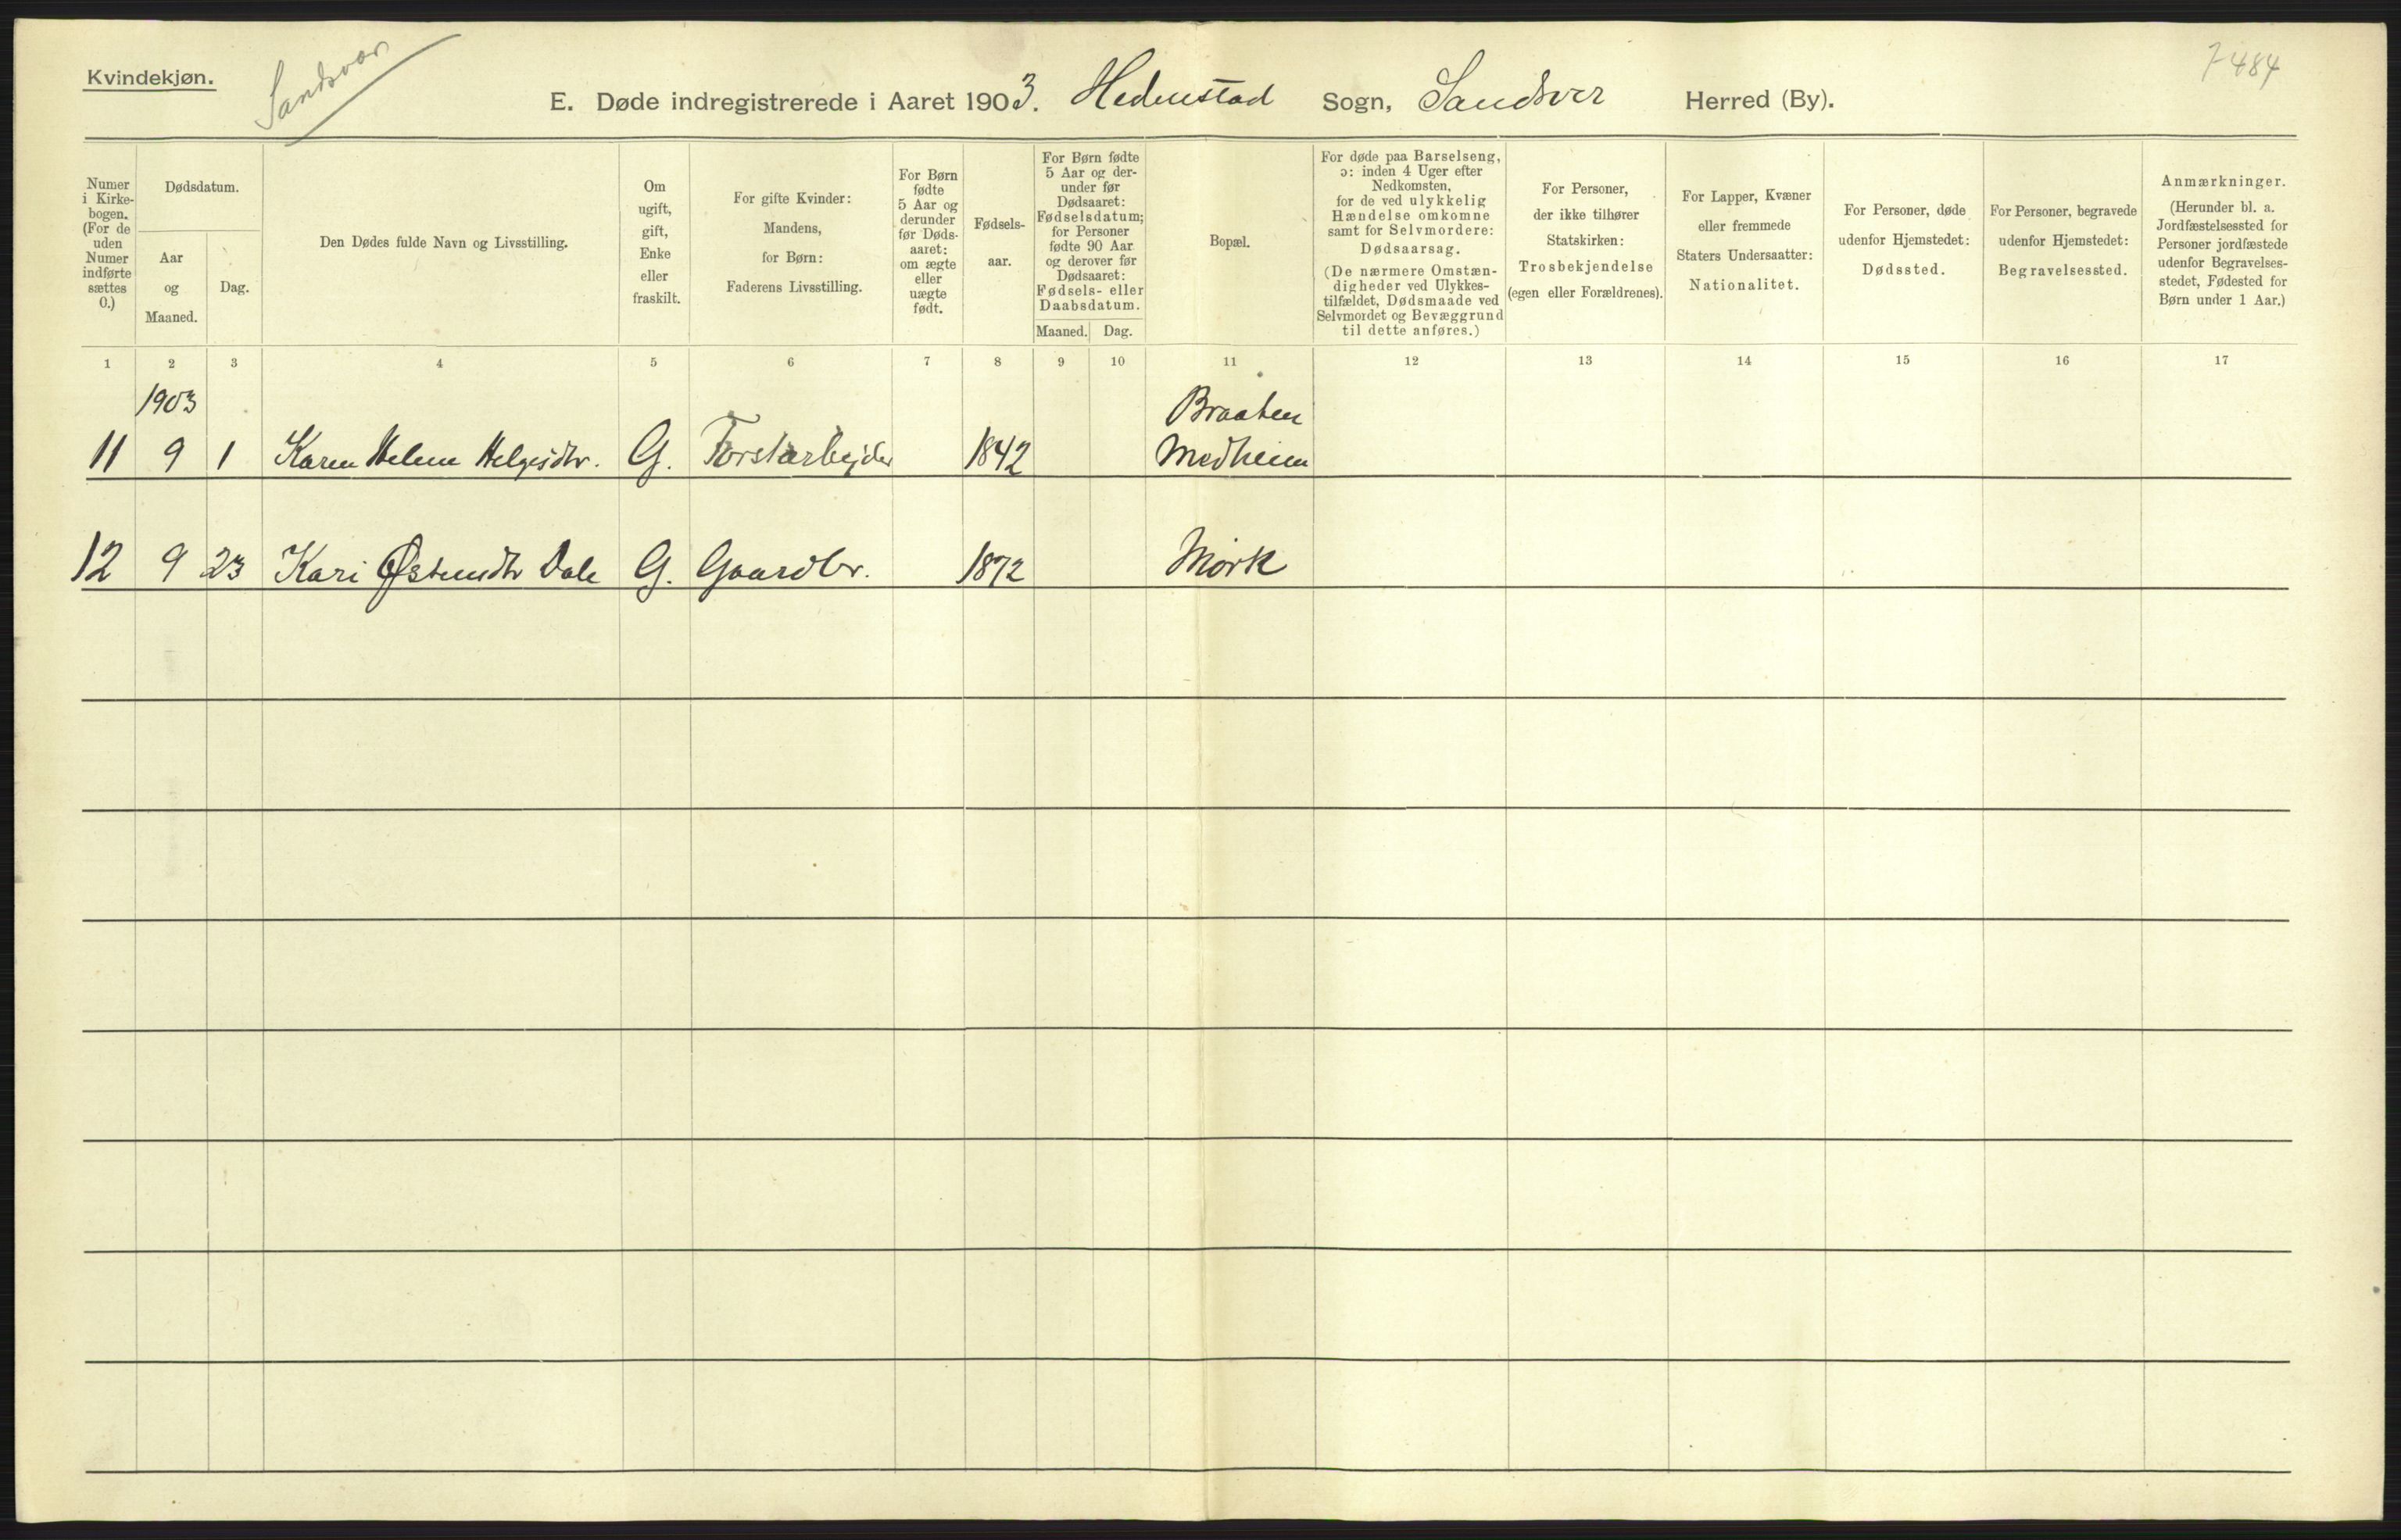 Kvindekjøn.
Sandsvær
7484
E. Døde indregistrerede i Aaret 1903. Hedenstad Sogn, Sandsver Herred (By).
Numer
i Kirke-
bogen.
(For de
uden
Numer
indførte
sættes
0.)
Dødsdatum.
Aar
og
Maaned.
Dag.
Den Dødes fulde Navn og Livsstilling.
Om
ugift,
gift,
Enke
eller
fraskilt.
For gifte Kvinder:
Mandens,
for Børn:
Faderens Livsstilling.
For Børn
fødte
5 Aar og
derunder
før Døds-
aaret:
om ægte
eller
uægte
født.
Fødsels-
aar.
For Børn fødte
5 Aar og der-
under før
Dødsaaret:
Fødselsdatum;
for Personer
fødte 90 Aar
og derover før
Dødsaaret:
Fødsels- eller
Daabsdatum.
Maaned. Dag.
Bopæl.
For døde paa Barselseng,
ɔ: inden 4 Uger efter
Nedkomsten,
for de ved ulykkelig
Hændelse omkomne
samt for Selvmordere:
Dødsaarsag.
(De nærmere Omstæn-
digheder ved Ulykkes-
tilfældet, Dødsmaade ved
Selvmordet og Bevæggrund
til dette anføres.)
For Personer,
der ikke tilhører
Statskirken:
Trosbekjendelse
(egen eller Forældrenes).
For Lapper, Kvæner
eller fremmede
Staters Undersaatter:
Nationalitet.
For Personer, døde
udenfor Hjemstedet:
Dødssted.
For Personer, begravede
udenfor Hjemstedet:
Begravelsessted.
Anmærkninger.
(Herunder bl. a.
Jordfæstelsessted for
Personer jordfæstede
udenfor Begravelses-
stedet, Fødested for
Børn under 1 Aar.)
1 2 3 4 5 6 7 8 9 10 11 12 13 14 15 16 17
1903 Braaten
11 9 1 Karen Helene Helgesdtr. G. Forstarbejder 1842 Medheim
12 9 23 Kari Østensdtr Dale G. Gaardbr. 1872 Mørk